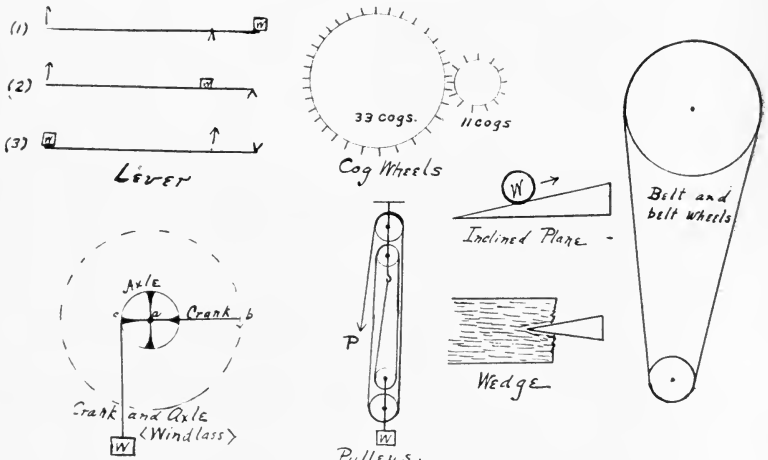 (1)
W
(2)
W
(3)
W
Lever
33 cogs.
11 cogs
Cog Wheels
W
Inclined Plane
Belt and
belt wheels
Axle
c
a
Crank
b
Crank and Axle
(Windlass)
W
P
W
Pulleys.
Wedge